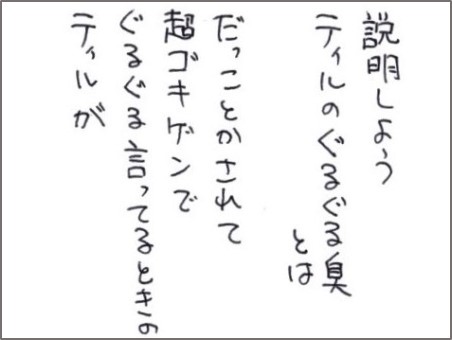 説明しよう
ティルのぐるぐる臭
とは
だっことかされて
超ゴキゲンで
ぐるぐる言ってるときの
ティルが